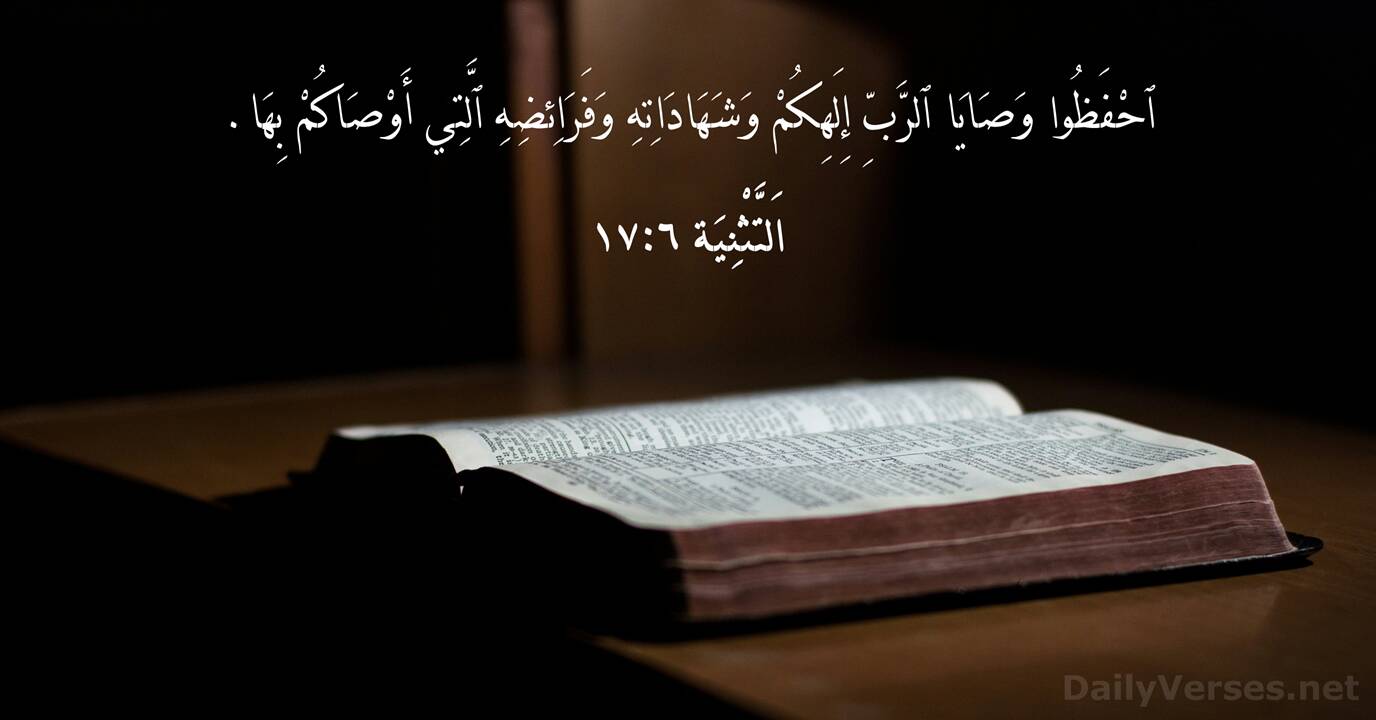 ٱحْفَظُوا وَصَايَا ٱلرَّبِّ إِلَهِكُمْ وَشَهَادَاتِهِ وَفَرَائِضِهِ ٱلَّتِي أَوْصَاكُمْ بِهَا .
اَلتَّثْنِيَة ٦:١٧
DailyVerses.net